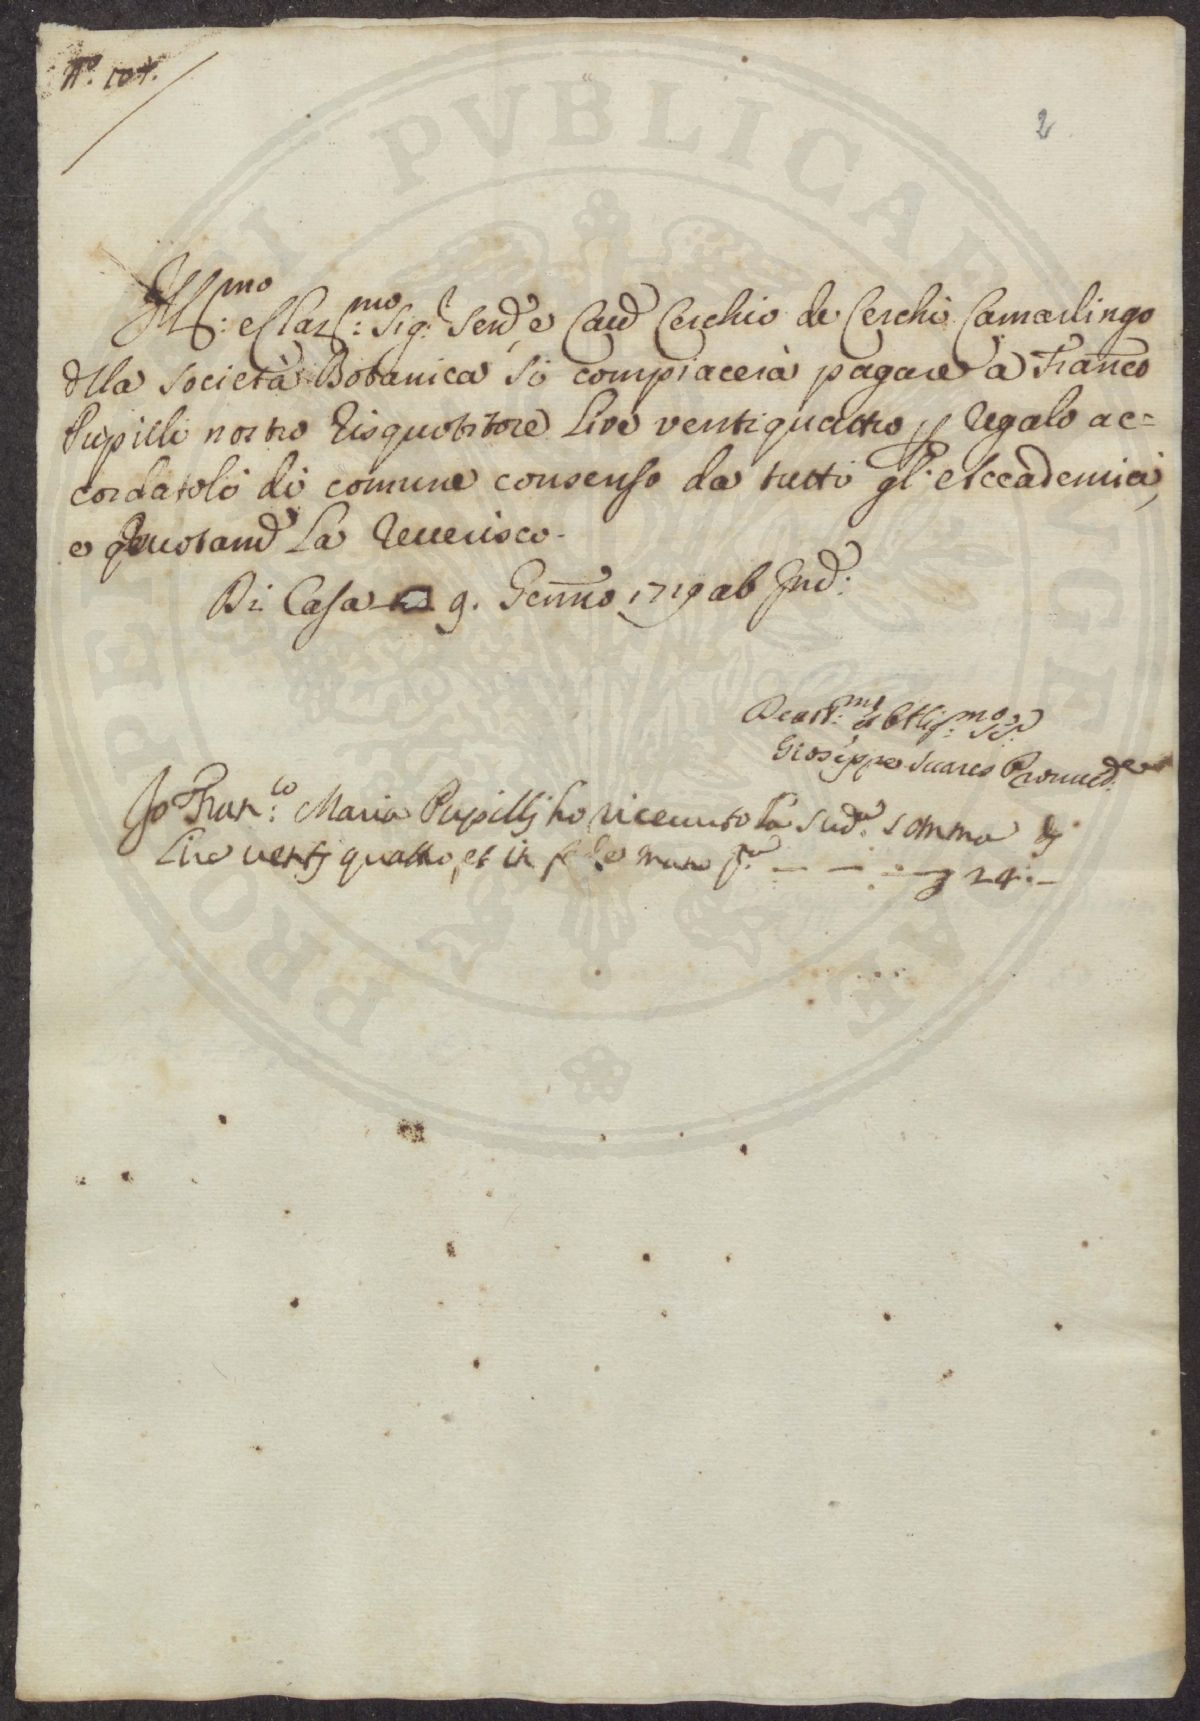 N.º 107.
2
Ill.mo e Clar.mo Sig.r Send.e e Cav.e Cerchio de Cerchi Camarlingo
della Società Botanica si compiacerà pagare a Franco
Pupilli nostro Risquotitore Lire ventiquattro p regalo ac=
cordatoli di comune consenso da tutti gl'Accademici,
e devotam.e La Reverisco.
Di Casa 9. Genno 1719 ab Ind:
Devot.mo et Obblig.mo Se.
Gioseppe Suares Provved.re
Io Fran.co Maria Pupillj ho riceuuto la sud.a somma dj
Lire ventj quattro, et in fede mano p.a — — — 24.—
PRO PVBLICAE